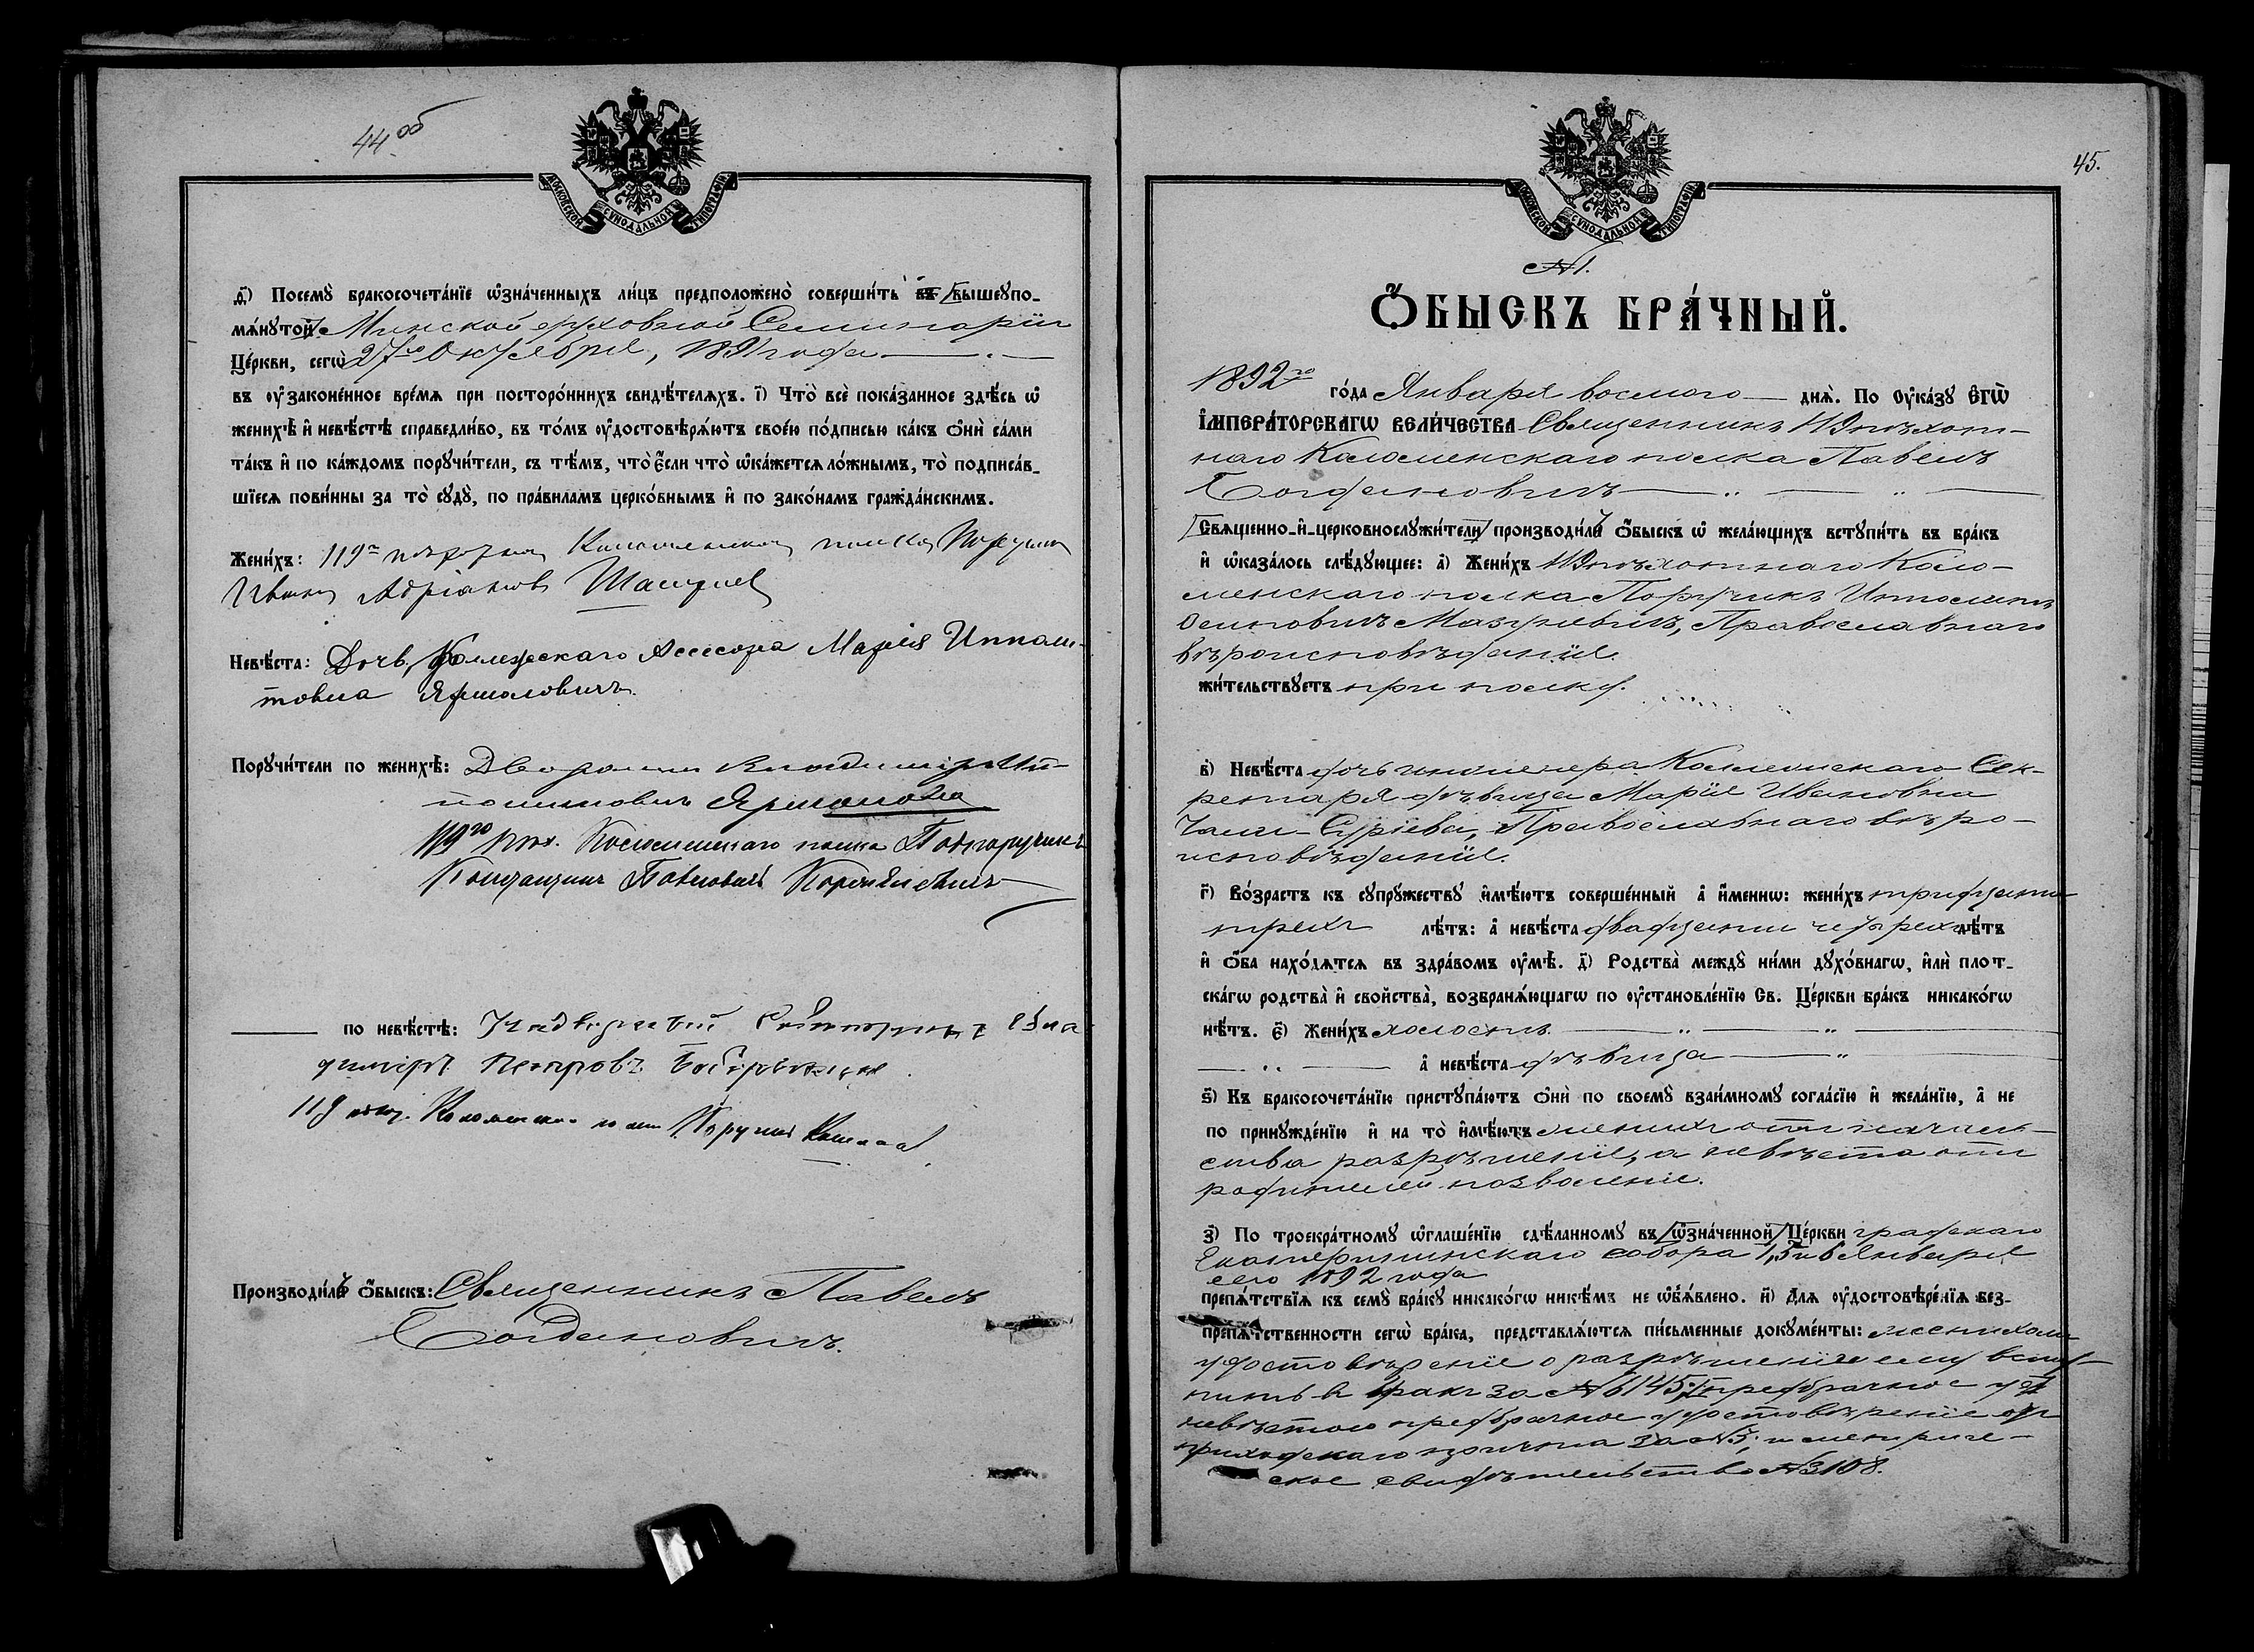 44 об
МОСКОВСКОЙ СѴНОДАЛЬНОЙ ТИПОГРАФІИ
д҃і) Посемꙋ̀ бракосочета́нїе ѡ҆зна́ченныхъ ли́цъ предположено̀ соверши́ть въ вышеꙋпо-
мѧ́нꙋтой Минской духовной Семинаріи
Це́ркви, сегѡ̀ 27го Октября, 1891 года
въ ᲂу҆зако́ненное вре́мѧ при посторо́ннихъ свидѣ́телѧхъ. і҃) Что̀ всѐ пока́занное здѣ́сь ѡ҆
женихѣ̀ и҆ невѣ́стѣ справедли́во, въ то́мъ ᲂу҆достовѣрѧ́ютъ свое́ю по́дписью ка́къ ѻ҆нѝ са́ми
та́къ и҆ по ка́ждомъ порꙋчи́тели, съ тѣ́мъ, что̀ є҆́сли что̀ ѡ҆ка́жетсѧ ло́жнымъ, то̀ подписа́в-
шїесѧ пови́нны за то̀ сꙋдꙋ̀, по пра́виламъ церко́внымъ и҆ по зако́намъ гражда́нскимъ.
Жени́хъ: 119го пѣхотнаго Коломенскаго полка Поручикъ
Иванъ Адріановъ
Невѣ́ста: Дочь Коллежскаго Ассесора Марія Иппали-
товна Ярмоловичъ.
Порꙋчи́тели по женихѣ̀: Дворянинъ Владиміръ Ип-
политовичъ
119го пѣх. Коломенскаго полка Подпоручикъ
Павловичъ
по невѣ́стѣ: Надворный Совѣтникъ Вла-
диміръ Петровъ
119 пѣх. Коломенскаго полка Поручикъ
Производи́лъ ѻ҆́быскъ: Священникъ Павелъ
Богдановичъ.
45.
МОСКОВСКОЙ СѴНОДАЛЬНОЙ ТИПОГРАФІИ
№ 1.
Ѻ҆́БЫСКЪ БРА́ЧНЫЙ.
1892го го́да Января восьмого днѧ̀. По Оу҆ка́зꙋ Є҆гѡ̀
І҆мпера́торскагѡ вели́чества Священникъ 119 пѣхот-
наго Коломенскаго полка Павелъ
Богдановичъ
Свѧще́нно-и҆-церковнослꙋжи́тели производи́лъ ѻ҆́быскъ ѡ҆ жела́ющихъ встꙋпи́ть въ бра́къ
и҆ ѡ҆каза́лось слѣ́дꙋющее: а҃) Жени́хъ 119 пѣхотнаго Коло-
менскаго полка Поручикъ Ипполитъ
Осиповичъ Мазуркевичъ, Православнаго
вѣроисповѣданія.
жи́тельствꙋетъ при полку.
в҃) Невѣ́ста дочь инженера Коллежскаго Сек-
ретаря дѣвица Марія Ивановна
Сурiева, Православнаго вѣро-
исповѣданія.
г҃) Во́зрастъ къ сꙋпрꙋ́жествꙋ и҆мѣ́ютъ соверше́нный а҆ и҆́меннѡ: жени́хъ тридцати
трехъ лѣ́тъ: а҆ невѣ́ста двадцати четырехъ лѣ́тъ
и҆ ѻ҆́ба нахо́дѧтсѧ въ здра́вомъ ᲂу҆мѣ̀. д҃) Родства̀ междꙋ̀ ни́ми дꙋхо́внагѡ, и҆лѝ плот-
ска́гѡ родства̀ и҆ свойства̀, возбранѧ́ющагѡ по ᲂу҆становле́нїю Св. Це́ркви бра́къ никако́гѡ
нѣ́тъ. є҃) Жени́хъ холостъ
а҆ невѣ́ста дѣвица
ѕ҃) Къ бракосочета́нїю пристꙋпа́ютъ ѻ҆нѝ по своемꙋ̀ взаи́мномꙋ согла́сїю и҆ жела́нїю, а҆ не
по принꙋжде́нїю и҆ на то̀ и҆мѣ́ютъ женихъ отъ началь-
ства разрѣшеніе, а невѣста отъ
родителей позволеніе.
з҃) По троекра́тномꙋ ѡ҆глаше́нїю сдѣ́ланномꙋ въ ѡ҆зна́ченной Це́ркви градскаго
Екатерининскаго собора 1, 5 и 6 Января
сего 1892 года
препѧ́тствїѧ къ семꙋ̀ бра́кꙋ никако́гѡ никѣ́мъ не ѡ҆б̾ѧ́влено. и҃) Длѧ ᲂу҆достовѣре́нїѧ без-
препѧ́тственности сегѡ̀ бра́ка, представлѧ́ютсѧ пи́сьменные докꙋме́нты: женихомъ
удостовѣреніе о разрѣшеніи ему всту-
пить въ бракъ за № 6145; предбрачное
невѣстою предбрачное удостовѣреніе отъ
приходскаго причта за № 5; и метриче-
ское свидѣтельство № 3108.